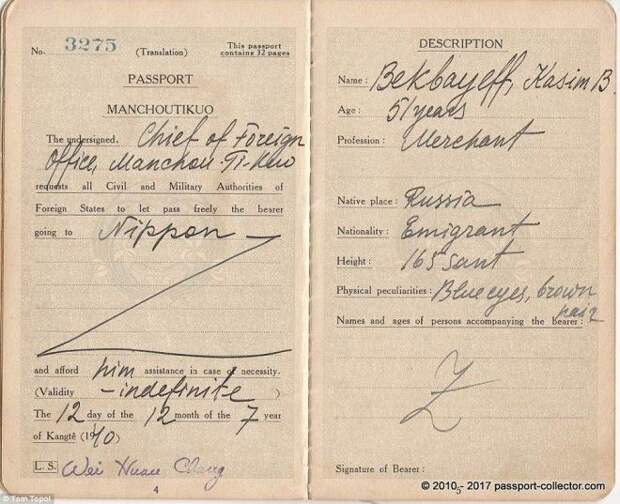 No. 3275 (Translation) This passport
contains 32 pages
PASSPORT
MANCHOUTIKUO
The undersigned, Chief of Foreign
Office, Manchou-Ti-Kuo
requests all Civil and Military Authorities of
Foreign States to let pass freely the bearer
going to Nippon —
and afford him assistance in case of necessity.
(Validity - indefinite )
The 12 day of the 12 month of the 7 year
of Kangtê (1940)
L. S. Wei Huan Chang
4
© Tom Topol
DESCRIPTION
Name : Bekbayeff, Kasim B.
Age : 51 years
Profession : Merchant
Native place : Russia
Nationality : Emigrant
Height : 165 sant
Physical peculiarities : Blue eyes, brown
hair
Names and ages of persons accompanying the bearer :
Z
Signature of Bearer :
5
© 2010 - 2017 passport-collector.com